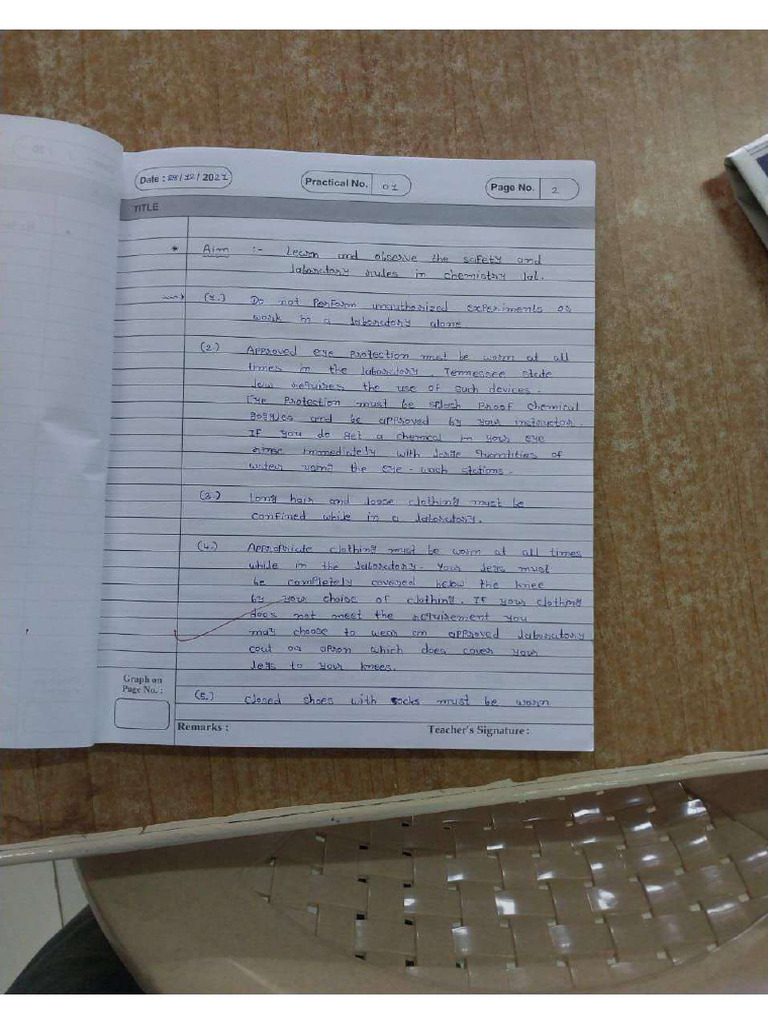 Date : 28/12/2021
Practical No. 01
Page No. 2
TITLE
* Aim :- Learn and observe the safety and
laboratory rules in chemistry lab.
(1.) Do not perform unauthorized experiments or
work in a laboratory alone
(2.) Approved eye protection must be worn at all
times in the laboratory. Tennessee state
law requires the use of such devices.
Eye Protection must be splash proof chemical
goggles and be approved by your instructor.
If you do get a chemical in your eye
rinse immediately with large quantities of
water using the eye - wash stations.
(3.) Long hair and loose clothing must be
confined while in a laboratory.
(4.) Appropriate clothing must be worn at all times
while in the laboratory. Your legs must
be completely covered below the knee
by your choise of clothing. If your clothing
does not meet the requirement you
may choose to wear an approved laboratory
cout or apron which does cover your
legs to your knees.
(5.) closed shoes with socks must be worn
Graph on
Page No. :
Remarks :
Teacher's Signature :